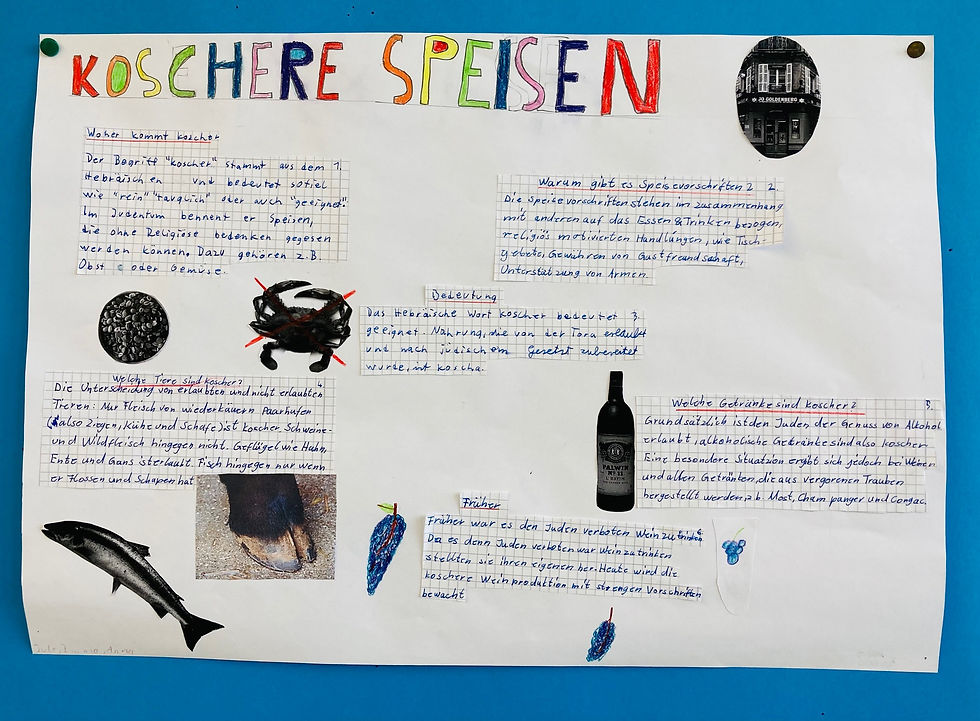 KOSCHERE SPEISEN
JO GOLDENBERG
Woher kommt koscher
Der Begriff "koscher" stammt aus dem 1.
Hebräischen und bedeutet sofiel
wie "rein" "tauglich" oder auch "geeignet".
Im Judentum bennent er Speisen,
die ohne Religiöse bedenken gegesen
werden können. Dazu gehören z.B.
Obst oder Gemüse.
Warum gibt es Speisevorschriften? 2.
Die Speisevorschriften stehen im zusammenhang
mit anderen auf das Essen & Trinken bezogen,
religiös motivierten Handlungen, wie Tisch-
gebete, Gewähren von Gastfreundschaft,
Unterstatzung von Armen.
Bedeutung
Das Hebräische Wort koscher bedeutet 3.
geeignet. Nahrung, die von der Tora erlaubt
und nach jüdischem Gesetzt zubereitet
wurde, ist koscha.
Welche Tiere sind koscher? 4.
Die Unterscheidung von erlaubten und nicht erlaubten
Tieren: Nur Fleisch von wiederkauern Paarhufen
(also Ziegen, Kühe und Schafe) ist koscher. Schweine-
und Wildfleisch hingegen nicht. Geflügel wie Huhn,
Ente und Gans ist erlaubt. Fisch hingegen nur wenn
er Flossen und Schupen hat
Welche Getränke sind koscher? 5.
Grundsätzlich ist den Juden der Genuss von Alkohol
erlaubt, alkoholische Getränke sind also koscher.
Eine besondere Situation ergibt sich jedoch bei Weinen
und allen Getränten, die aus vergorenen Trauben
hergestellt werden, z.b. Most, Champanger und Congac.
PALWIN
No 11
Früher
Früher war es den Juden verboten Wein zu trinken
Da es denn Juden verboten war Wein zu trinken
stellten sie ihren eigenen her. Heute wird die
koschere Weinproduktion mit strengen Vorschriften
bewacht